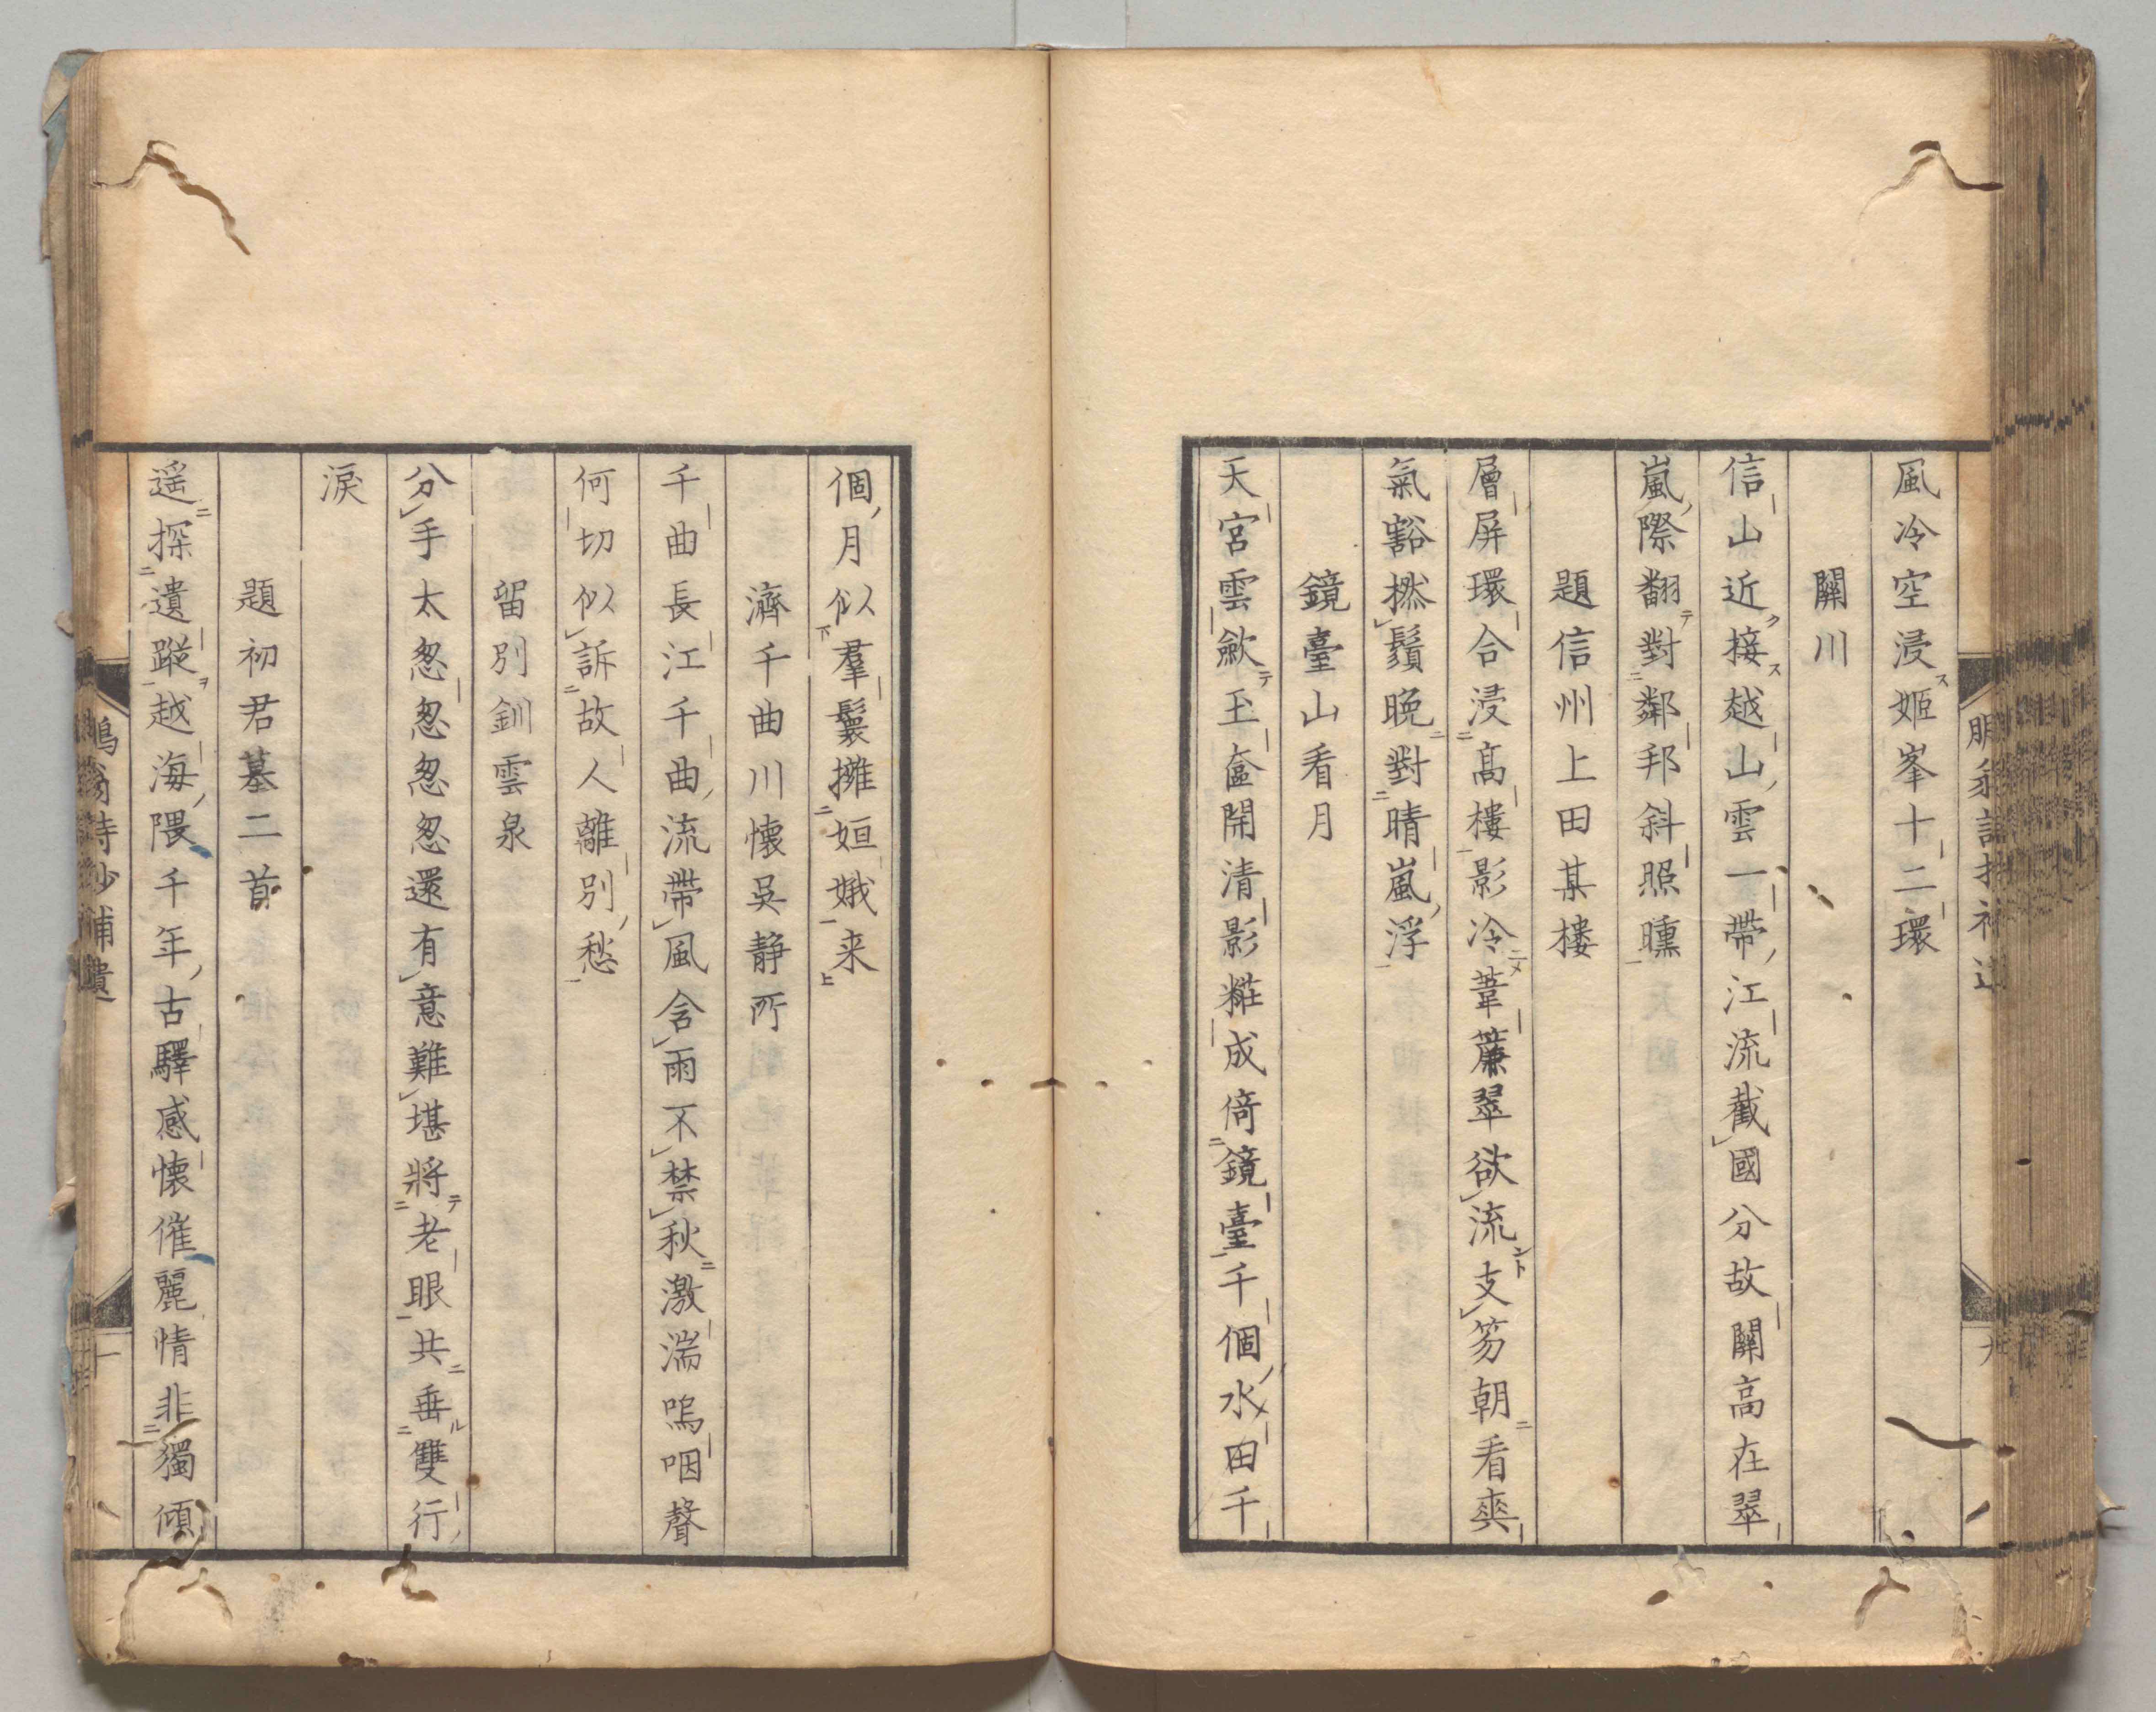 風冷空浸姬峯十二環
關川
信山近接越山雲一帶江流截國分故關高在翠
嵐際翻對鄰邦斜照曛
題信州上田某樓
層屏環合浸高樓影冷葦簾翠欲流支笏朝看爽
氣豁撚鬚晚對晴嵐浮
鏡臺山看月
天宮雲歛玉奩開清影糚成倚鏡臺千個水田千
個月似羣鬟擁姮娥来
濟千曲川懷吳静所
千曲長江千曲流帶風含雨不禁秋激湍嗚咽聲
何切似訴故人離別愁
留別釧雲泉
分手太怱怱怱怱還有意難堪將老眼共垂雙行
淚
題初君墓二首
遥探遺蹤越海隈千年古驛感懷催麗情非獨傾
翁詩抄補遺